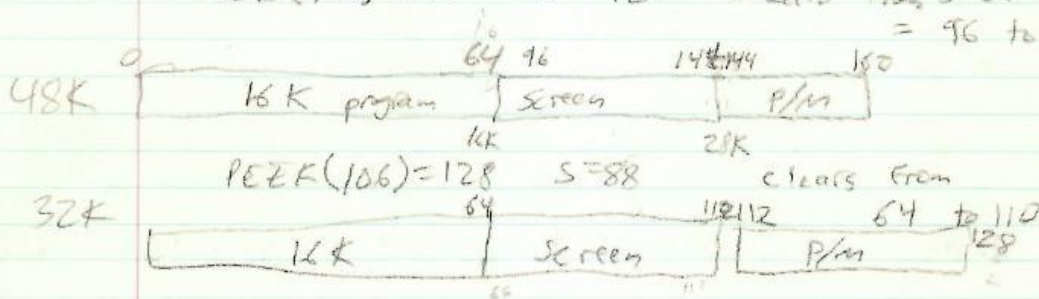 = 96 to
0 64 96 144 144 160
48K 16K program Screen P/M
16K 28K
PEEK(106)=128 S=88 clears from
32K 64 112 112 64 to 110
16K Screen P/M 128